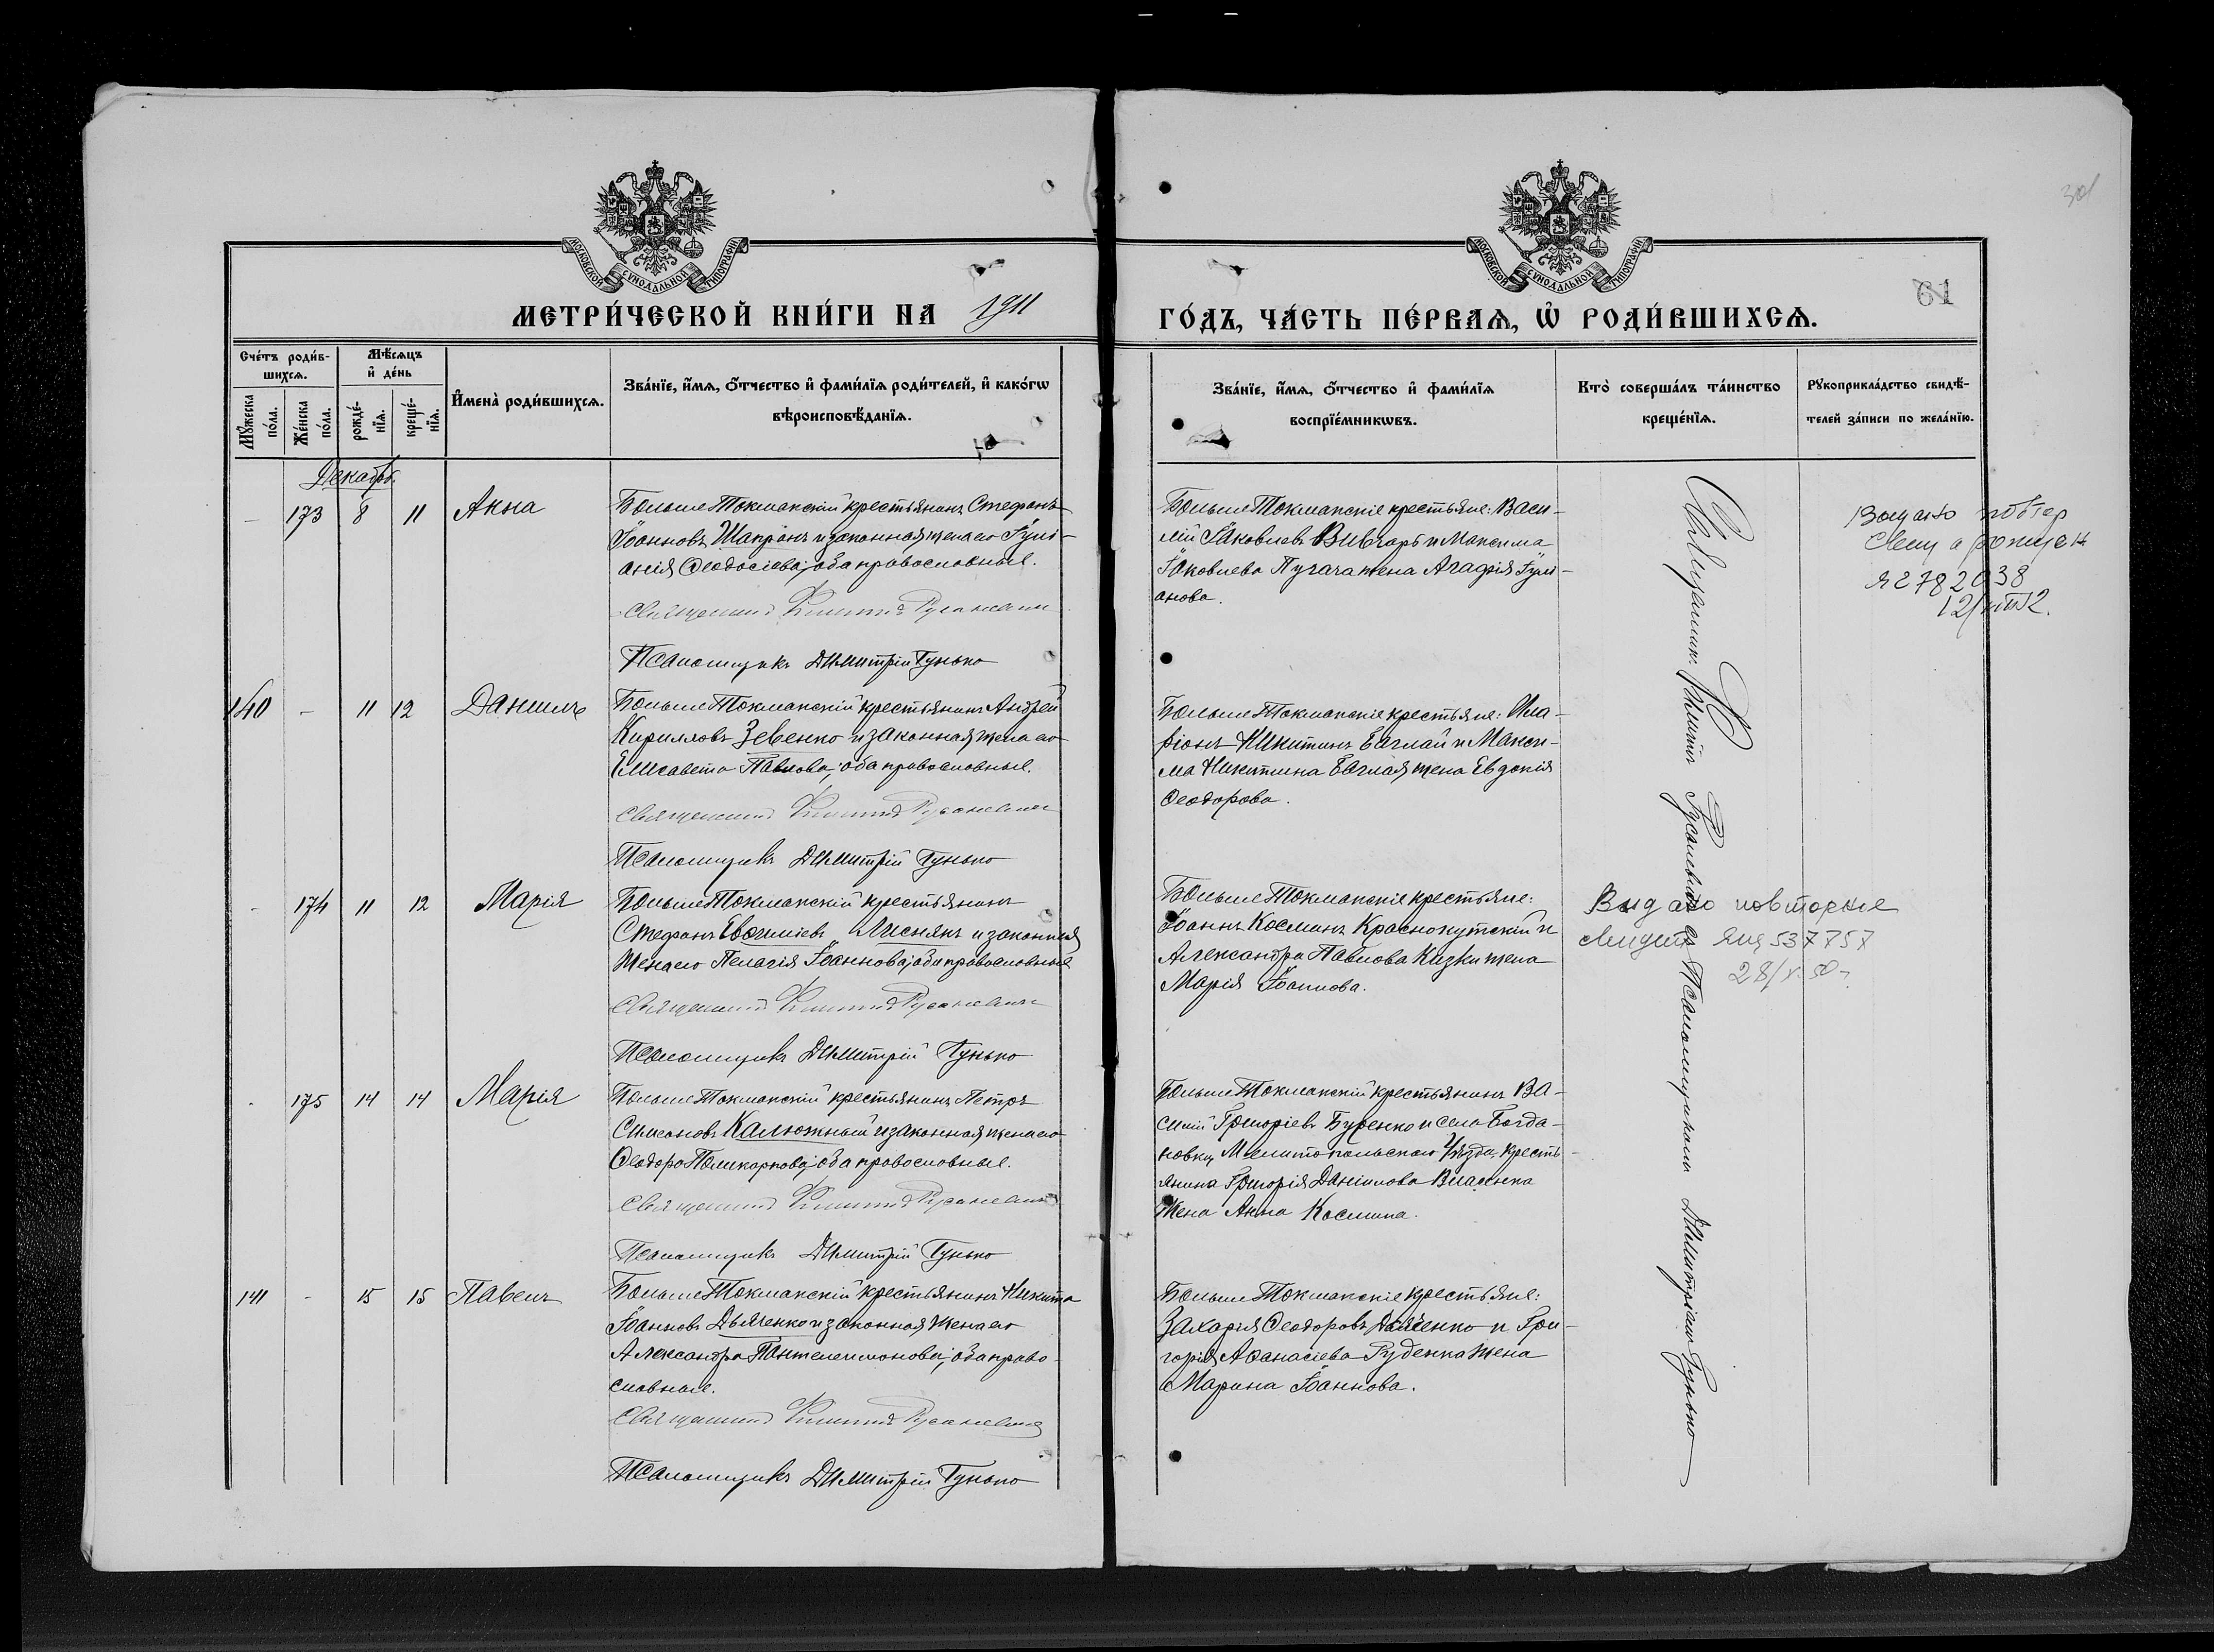 МОСКОВСКОЙ СУНОДАЛЬНОЙ ТИПОГРАФІИ
МОСКОВСКОЙ СУНОДАЛЬНОЙ ТИПОГРАФІИ
301
61
МЕТРИ́ЧЕСКОЙ КНИ́ГИ НА 1911
ГО́ДЪ, ЧА́СТЬ ПЕ́РВАѦ, Ѡ҆ РОДИ́ВШИХСѦ.
Сче́тъ роди́в-
шихсѧ.
Мꙋ́жеска по́ла.
Же́нска по́ла.
Мѣ́сѧцъ
и҆ де́нь
рожде́-
нїѧ.
креще́-
нїѧ.
И҆мена̀ роди́вшихсѧ.
Зва́нїе, и҆́мѧ, ѻ҆́тчество и҆ фами́лїѧ роди́телей, и҆ како́гѡ
вѣроисповѣ́данїѧ.
Зва́нїе, и҆́мѧ, ѻ҆́тчество и҆ фами́лїѧ
воспрїе́мникѡвъ.
Кто̀ соверша́лъ та́инство
креще́нїѧ.
Рꙋкоприкла́дство свидѣ́-
телей за́писи по жела́нїю.
Декабрь.
- 173 8 11 Анна
Больше Токмакскій крестьянинъ Стефанъ
Іоанновъ Шапранъ и законная жена его Іулі-
анія Ѳеодосіева; оба православные.
Священникъ Филиппъ Русаневичъ
Псаломщикъ Димитрій Гунько
Больше Токмакскіе крестьяне: Васи-
лій Іаковлевъ Вивчарь и Максима
Іаковлева Пугача жена Агафія Іулі-
анова.
повтор
12
140 - 11 12 Даниилъ
Больше Токмакскій крестьянинъ Андрей
Кирилловъ Зевенко и законная жена его
Елисавета Павлова; оба православные.
Священникъ Филиппъ Русаневичъ
Псаломщикъ Димитрій Гунько
Больше Токмакскіе крестьяне: Ила-
ріонъ Никитинъ Баглай и Макси-
ма Никитина Баглая жена Евдокія
Ѳеодорова.
- 174 11 12 Марія
Больше Токмакскій крестьянинъ
Стефанъ Евѳиміевъ Лиснякъ и законная
жена его Пелагія Іоаннова; оба православные
Священникъ Филиппъ Русаневичъ
Псаломщикъ Димитрій Гунько
Больше Токмакскіе крестьяне:
Іоаннъ Косминъ Краснокутскій и
Александра Павлова Кизки жена
Марія Іоаннова.
Выдано повторные
537757
- 175 14 14 Марія
Больше Токмакскій крестьянинъ Петръ
Симеоновъ Калюжный и законная жена его
Ѳеодора Поликарпова; оба православные.
Священникъ Филиппъ Русаневичъ
Псаломщикъ Димитрій Гунько
Больше Токмакскій крестьянинъ Ва-
силій Григоріевъ Буренко и села Богда-
новки, Мелитопольскаго Уѣзда, кресть-
янина Григорія Даніилова Власенка
жена Анна Космина.
141 - 15 15 Павелъ
Больше Токмакскій крестьянинъ Никита
Іоанновъ Дьяченко и законная жена его
Александра Пантелеимонова; оба право-
славные.
Священникъ Филиппъ Русаневичъ
Псаломщикъ Димитрій Гунько
Больше Токмакскіе крестьяне:
Захарія Ѳеодоровъ Дьяченко и Гри-
горія Аѳанасіева Руденка жена
Марина Іоаннова.
Священникъ Филиппъ Русаневичъ съ Псаломщикомъ Димитріемъ Гунько